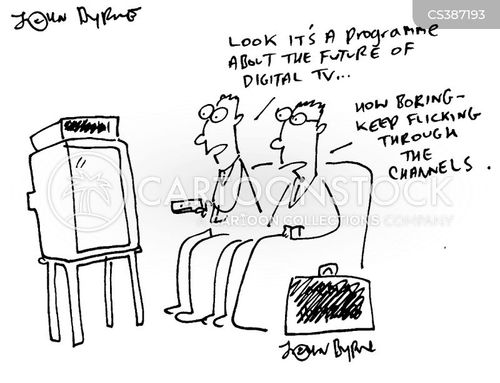 JOHN BYRNE
CS387193
LOOK IT'S A PROGRAMME
ABOUT THE FUTURE OF
DIGITAL TV...
HOW BORING-
KEEP FLICKING
THROUGH
THE
CHANNELS.
CARTOONSTOCK
CARTOON COLLECTIONS COMPANY
JOHN BYRNE